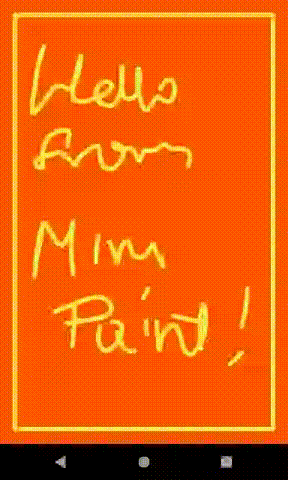 Hello
from
Mini
Paint!